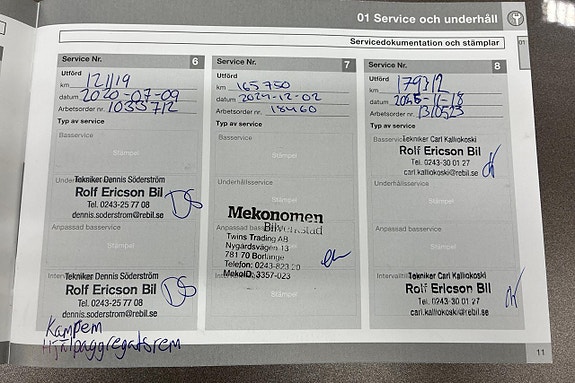 01 Service och underhåll
Servicedokumentation och stämplar
01
Service Nr. 6
Utförd
km 121119
datum 2020-07-09
Arbetsorder nr. 1033712
Typ av service
Basservice
Stämpel
Tekniker Dennis Söderström
Rolf Ericson Bil
Tel. 0243-25 77 08
dennis.soderstrom@rebil.se
DS
Anpassad basservice
Stämpel
Tekniker Dennis Söderström
Rolf Ericson Bil
Tel. 0243-25 77 08
dennis.soderstrom@rebil.se
DS
Kamrem
Hjälpaggregatsrem
Service Nr. 7
Utförd
km 165750
datum 2024-12-02
Arbetsorder nr. 18460
Typ av service
Basservice
Stämpel
Underhållsservice
Mekonomen
Bilverkstad
Twins Trading AB
Nygårdsvägen 13
781 70 Borlänge
Telefon: 0243-823 20
MekoID: 3357-023
Stämpel
Service Nr. 8
Utförd
km 179312
datum
Arbetsorder nr. 1310523
Typ av service
Basservice
Tekniker Carl Kalliokoski
Rolf Ericson Bil
Tel. 0243-30 01 27
carl.kalliokoski@rebil.se
Underhållsservice
Stämpel
Anpassad basservice
Stämpel
Tekniker Carl Kalliokoski
Rolf Ericson Bil
Tel. 0243-30 01 27
carl.kalliokoski@rebil.se
11